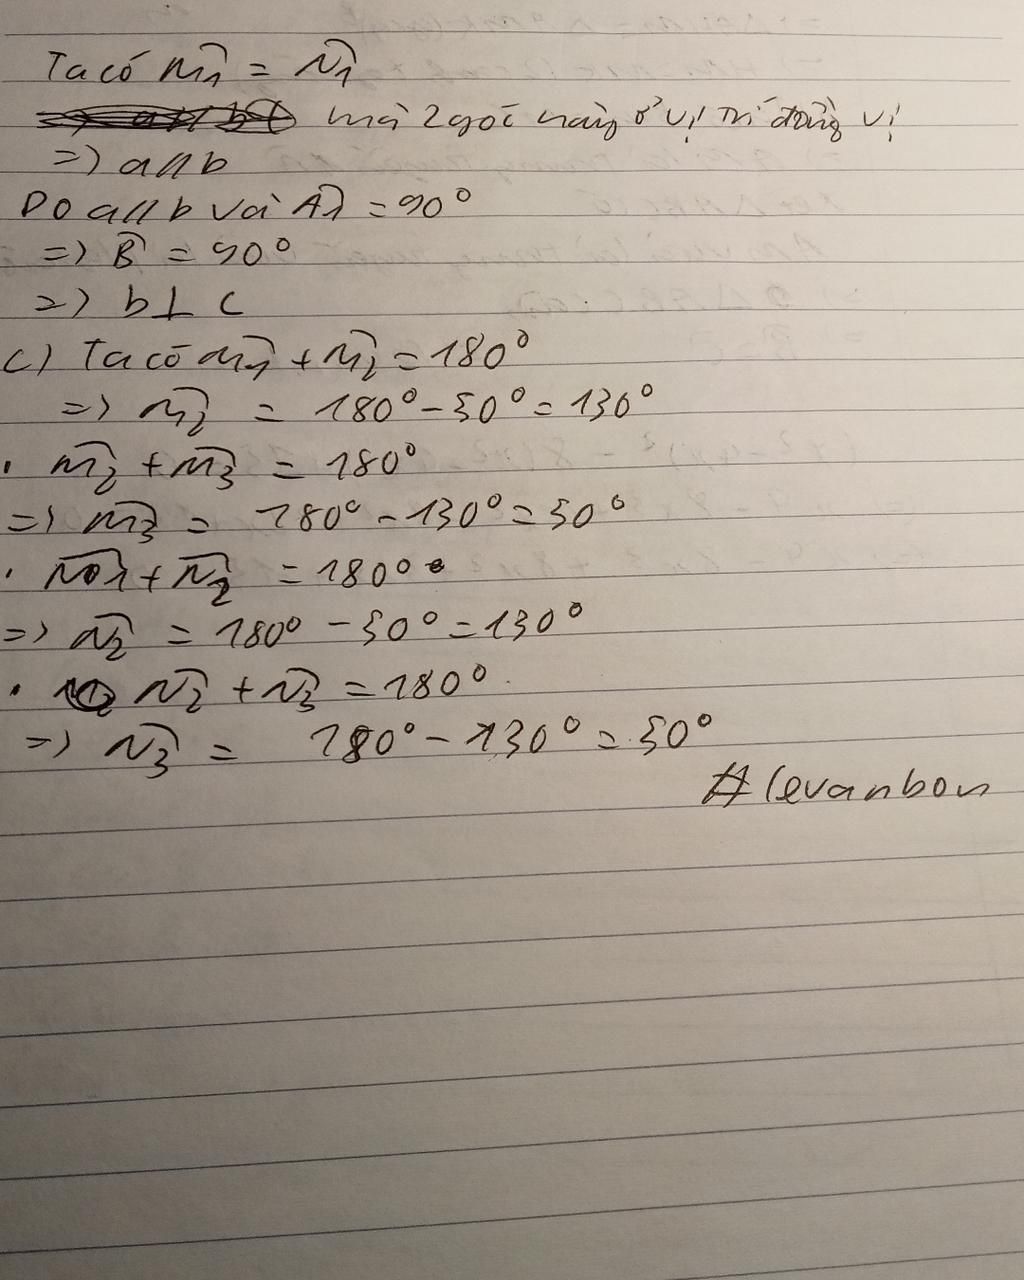 Ta có M̂1 = N̂1
mà 2 góc này ở vị trí đồng vị
=> a // b
Do a // b và Â1 = 90°
=> B̂ = 90°
=> b ⊥ c
c) Ta có M̂1 + M̂2 = 180°
=> M̂2 = 180° - 50° = 130°
. M̂2 + M̂3 = 180°
=> M̂3 = 180° - 130° = 50°
. N̂1 + N̂2 = 180°
=> N̂2 = 180° - 50° = 130°
. N̂2 + N̂3 = 180°
=> N̂3 = 180° - 130° = 50°
# levanbon